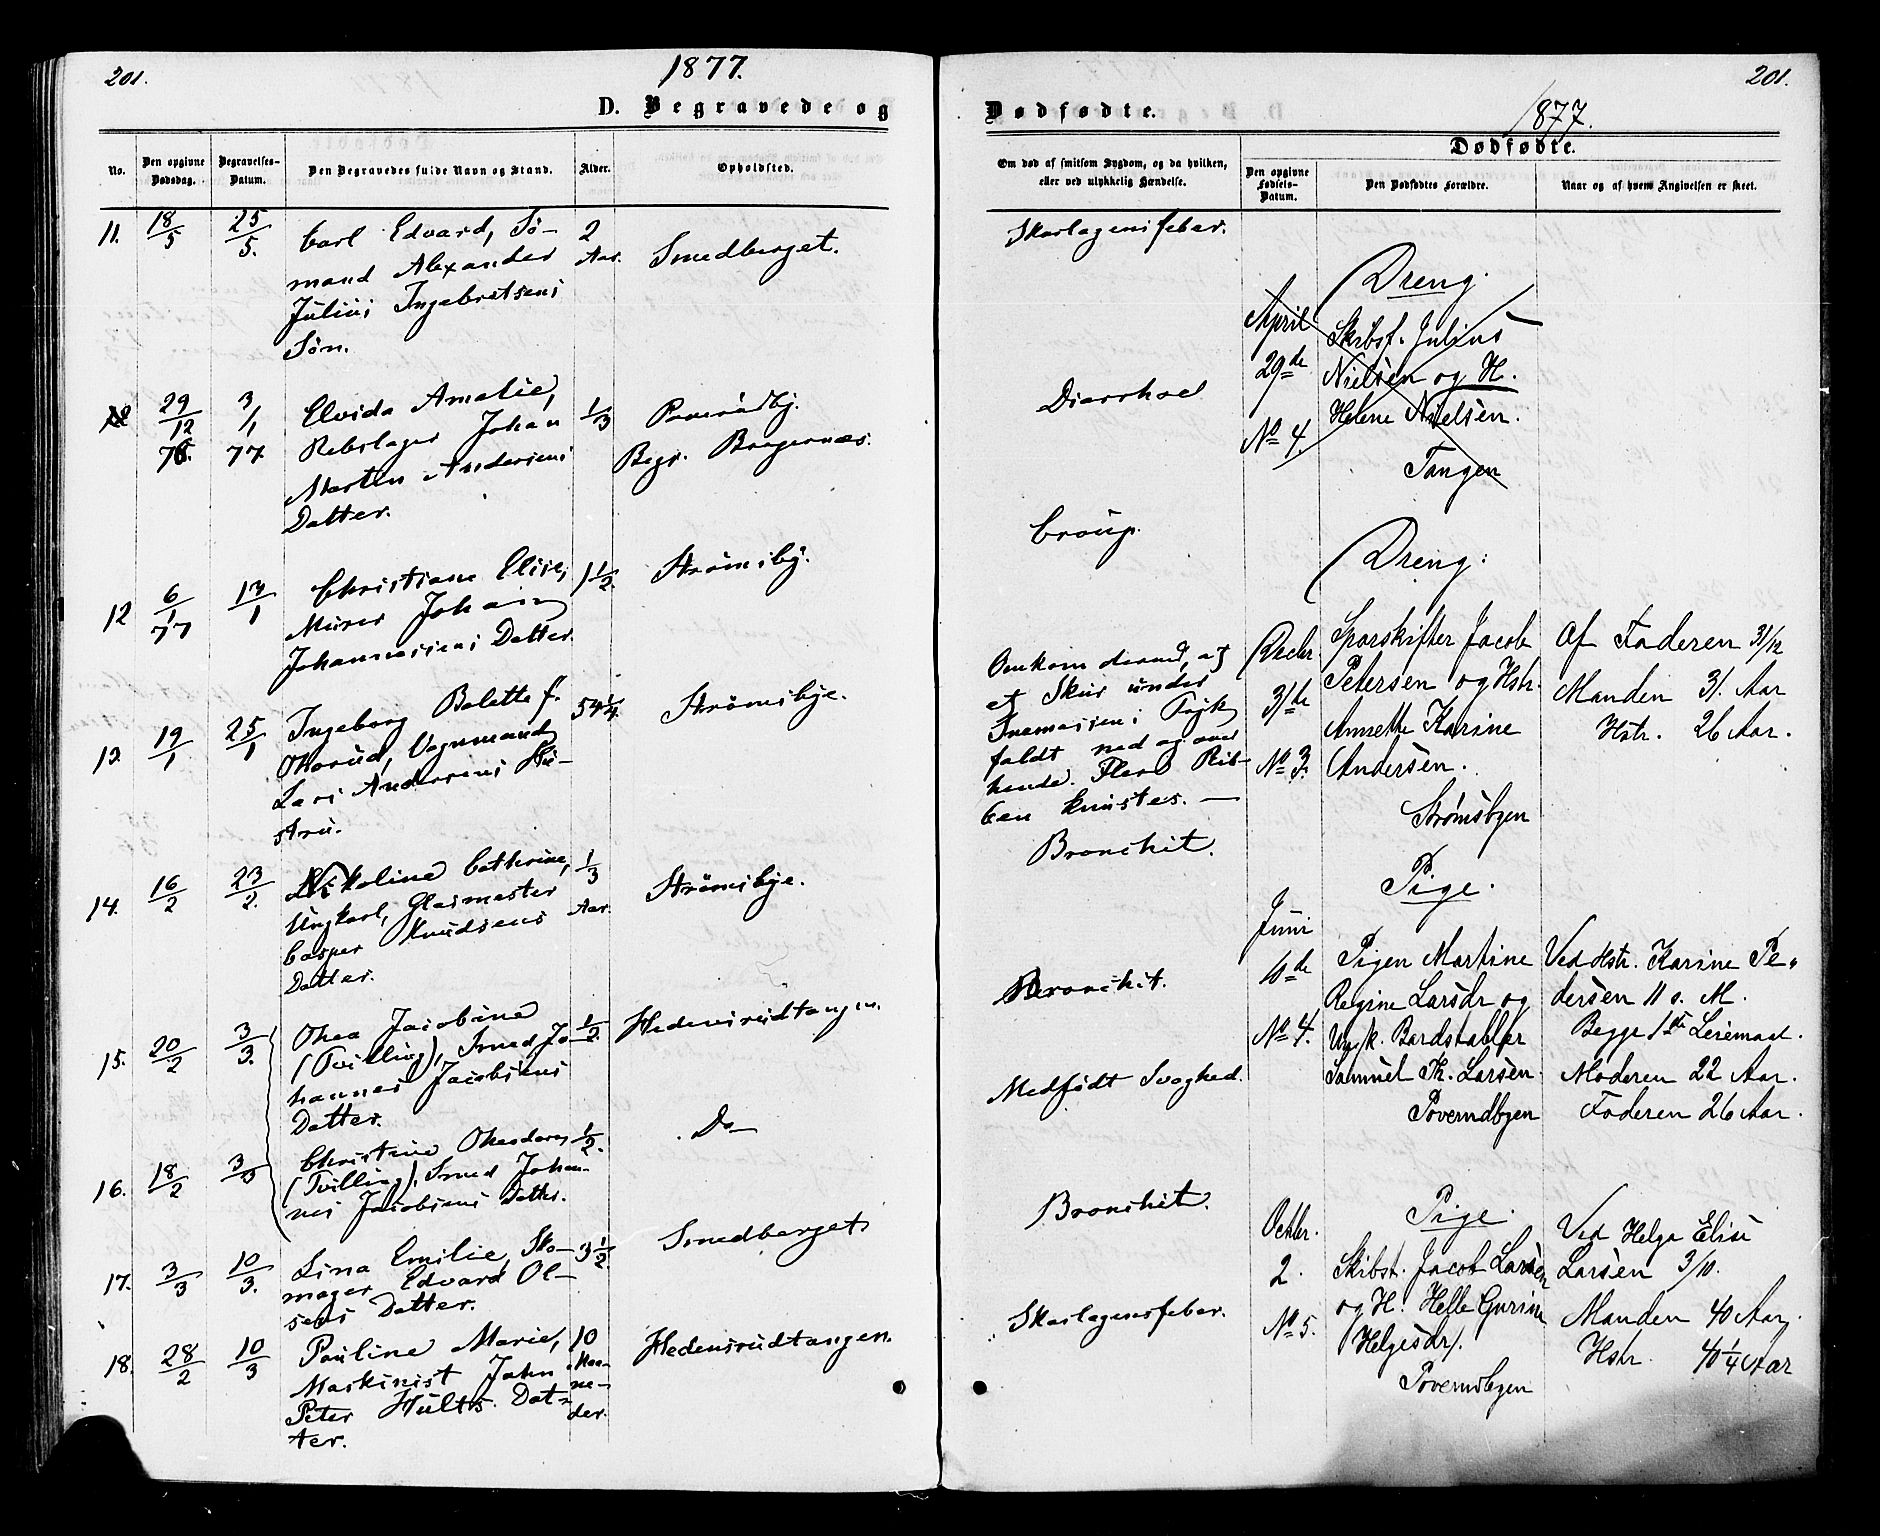 201.
1877.
D. Begravede og
No.
Den opgivne Dødsdag.
Begravelses-Datum.
Den Begravedes fulde Navn og Stand.
Alder.
Opholdsted.
11.
18/5
25/5.
Carl Edvard, Sø-
mand Alexander
Julius Ingebretsens
Søn.
2
Aar.
Smedberget.
29/12
76.
3/1
77.
Elvida Amalie,
Rebslager Johan
Morten Andersens
Datter.
1/3
Begr. Bragernæs.
12
6/1
77
13/1
Christiane Elise,
Murer Johan
Johannesens Datter.
1 1/2.
Strømsby.
13.
19/1
25/1
Ingeborg Bolette f.
Vognmand
Lars Andersens Hu-
stru.
54 1/4.
Strømsbye.
14.
16/2
23/2.
Nikoline Cathrine,
Ungkarl, Glasmester
Casper Knudsens
Datter.
1/3
Aar.
Strømsbye.
15.
20/2
3/3.
Othea Jacobine
(Tvilling), Smed Jo-
hannes Jacobsens
Datter.
1/2.
Hedensrudtangen.
16.
18/2
3/3
Christine Theodora
(Tvilling), Smed Johan-
nes Jacobsens Datter.
1/2.
Do
17.
3/3
10/3.
Lina Emilie, Sko-
mager Edvard Ol-
sens Datter.
3 1/2.
Smedberget
18.
28/2
10/3
Pauline Marie,
Maskinist John
Peter Hults Dat-
ter.
10
Maa-
ne-
der.
Hedensrudtangen.
201.
Dødfødte.
1877.
Om død af smitsom Sygdom, og da hvilken,
eller ved ulykkelig Hændelse.
Dødfødte.
Den opgivne Fødsels-Datum.
Den Dødfødtes Forældre.
Naar og af hvem Angivelsen er skeet.
Skarlagensfeber.
Diarrhoe
Croup.
Omkom derved, at
et Skur under
faldt ned og over
hende. Flere Rib-
ben knustes. —
Bronchit.
Bronchit.
Medfødt Svaghed.
Bronchit.
Skarlagensfeber.
Dreng.
April
29de
No 4.
Skibsf. Julius
Nielsen og H.
Helene Nielsen.
Tangen
Dreng.
Decbr
31de
No 3.
Sporskifter Jacob
Petersen og Hstr.
Annette Karine
Andersen.
Strømsbyen
Af Faderen 31/12
Manden 31. Aar
Hstr. 26 Aar.
Pige.
Juni
No 4.
Pigen Martine
Regine Larsdr og
Ungk. Bordstabler
Samuel Th. Larsen.
Poverudbyen
Ved Hstr. Karine Pe-
dersen 11 s. M.
Begge 1ste Leiermaal.
Moderen 22 Aar.
Faderen 26 Aar.
Pige.
Octbr.
2.
No 5.
Skibst. Jacob Larsen
og H. Helle Gurine
Helgesdr.
Poverudbyen
Ved Helga Elise
Larsen 3/10.
Manden 40 Aar,
Hstr. 40 1/4 Aar